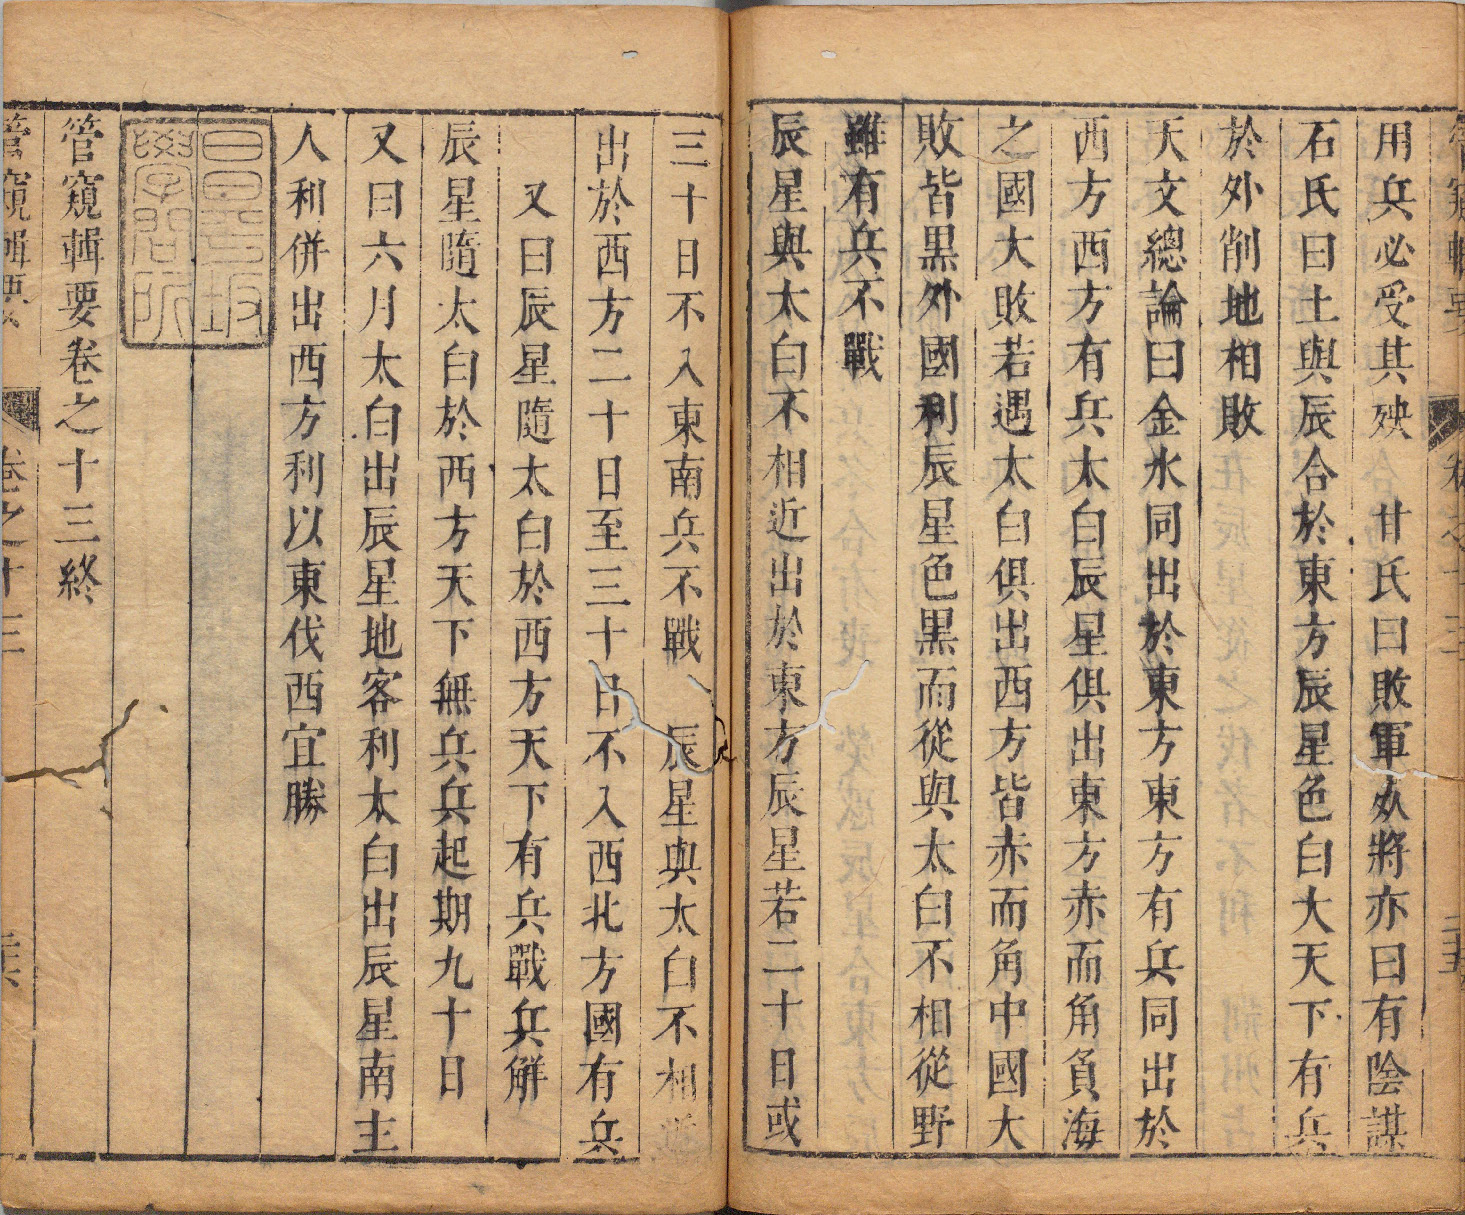 用兵必受其殃　甘氏曰敗軍必將亦曰有陰謀
石氏曰土與辰合於東方辰星色白大天下有兵
於外削地相敗
天文總論曰金水同出於東方東方有兵同出於
西方西方有兵太白辰星俱出東方赤而角負海
之國大敗若遇太白俱出西方皆赤而角中國大
敗皆黒外國利辰星色黒而從與太白不相從野
雖有兵不戰
辰星與太白不相近出於東方辰星若二十日或
三十日不入東南兵不戰　辰星與太白不相近
出於西方二十日至三十日不入西北方國有兵
又曰辰星隨太白於西方天下有兵戰兵解
辰星隨太白於西方天下無兵兵起期九十日
又曰六月太白出辰星地客利太白出辰星南主
人利併出西方利以東伐西宜勝
管窺輯要卷之十三終
管窺輯要　卷之十三